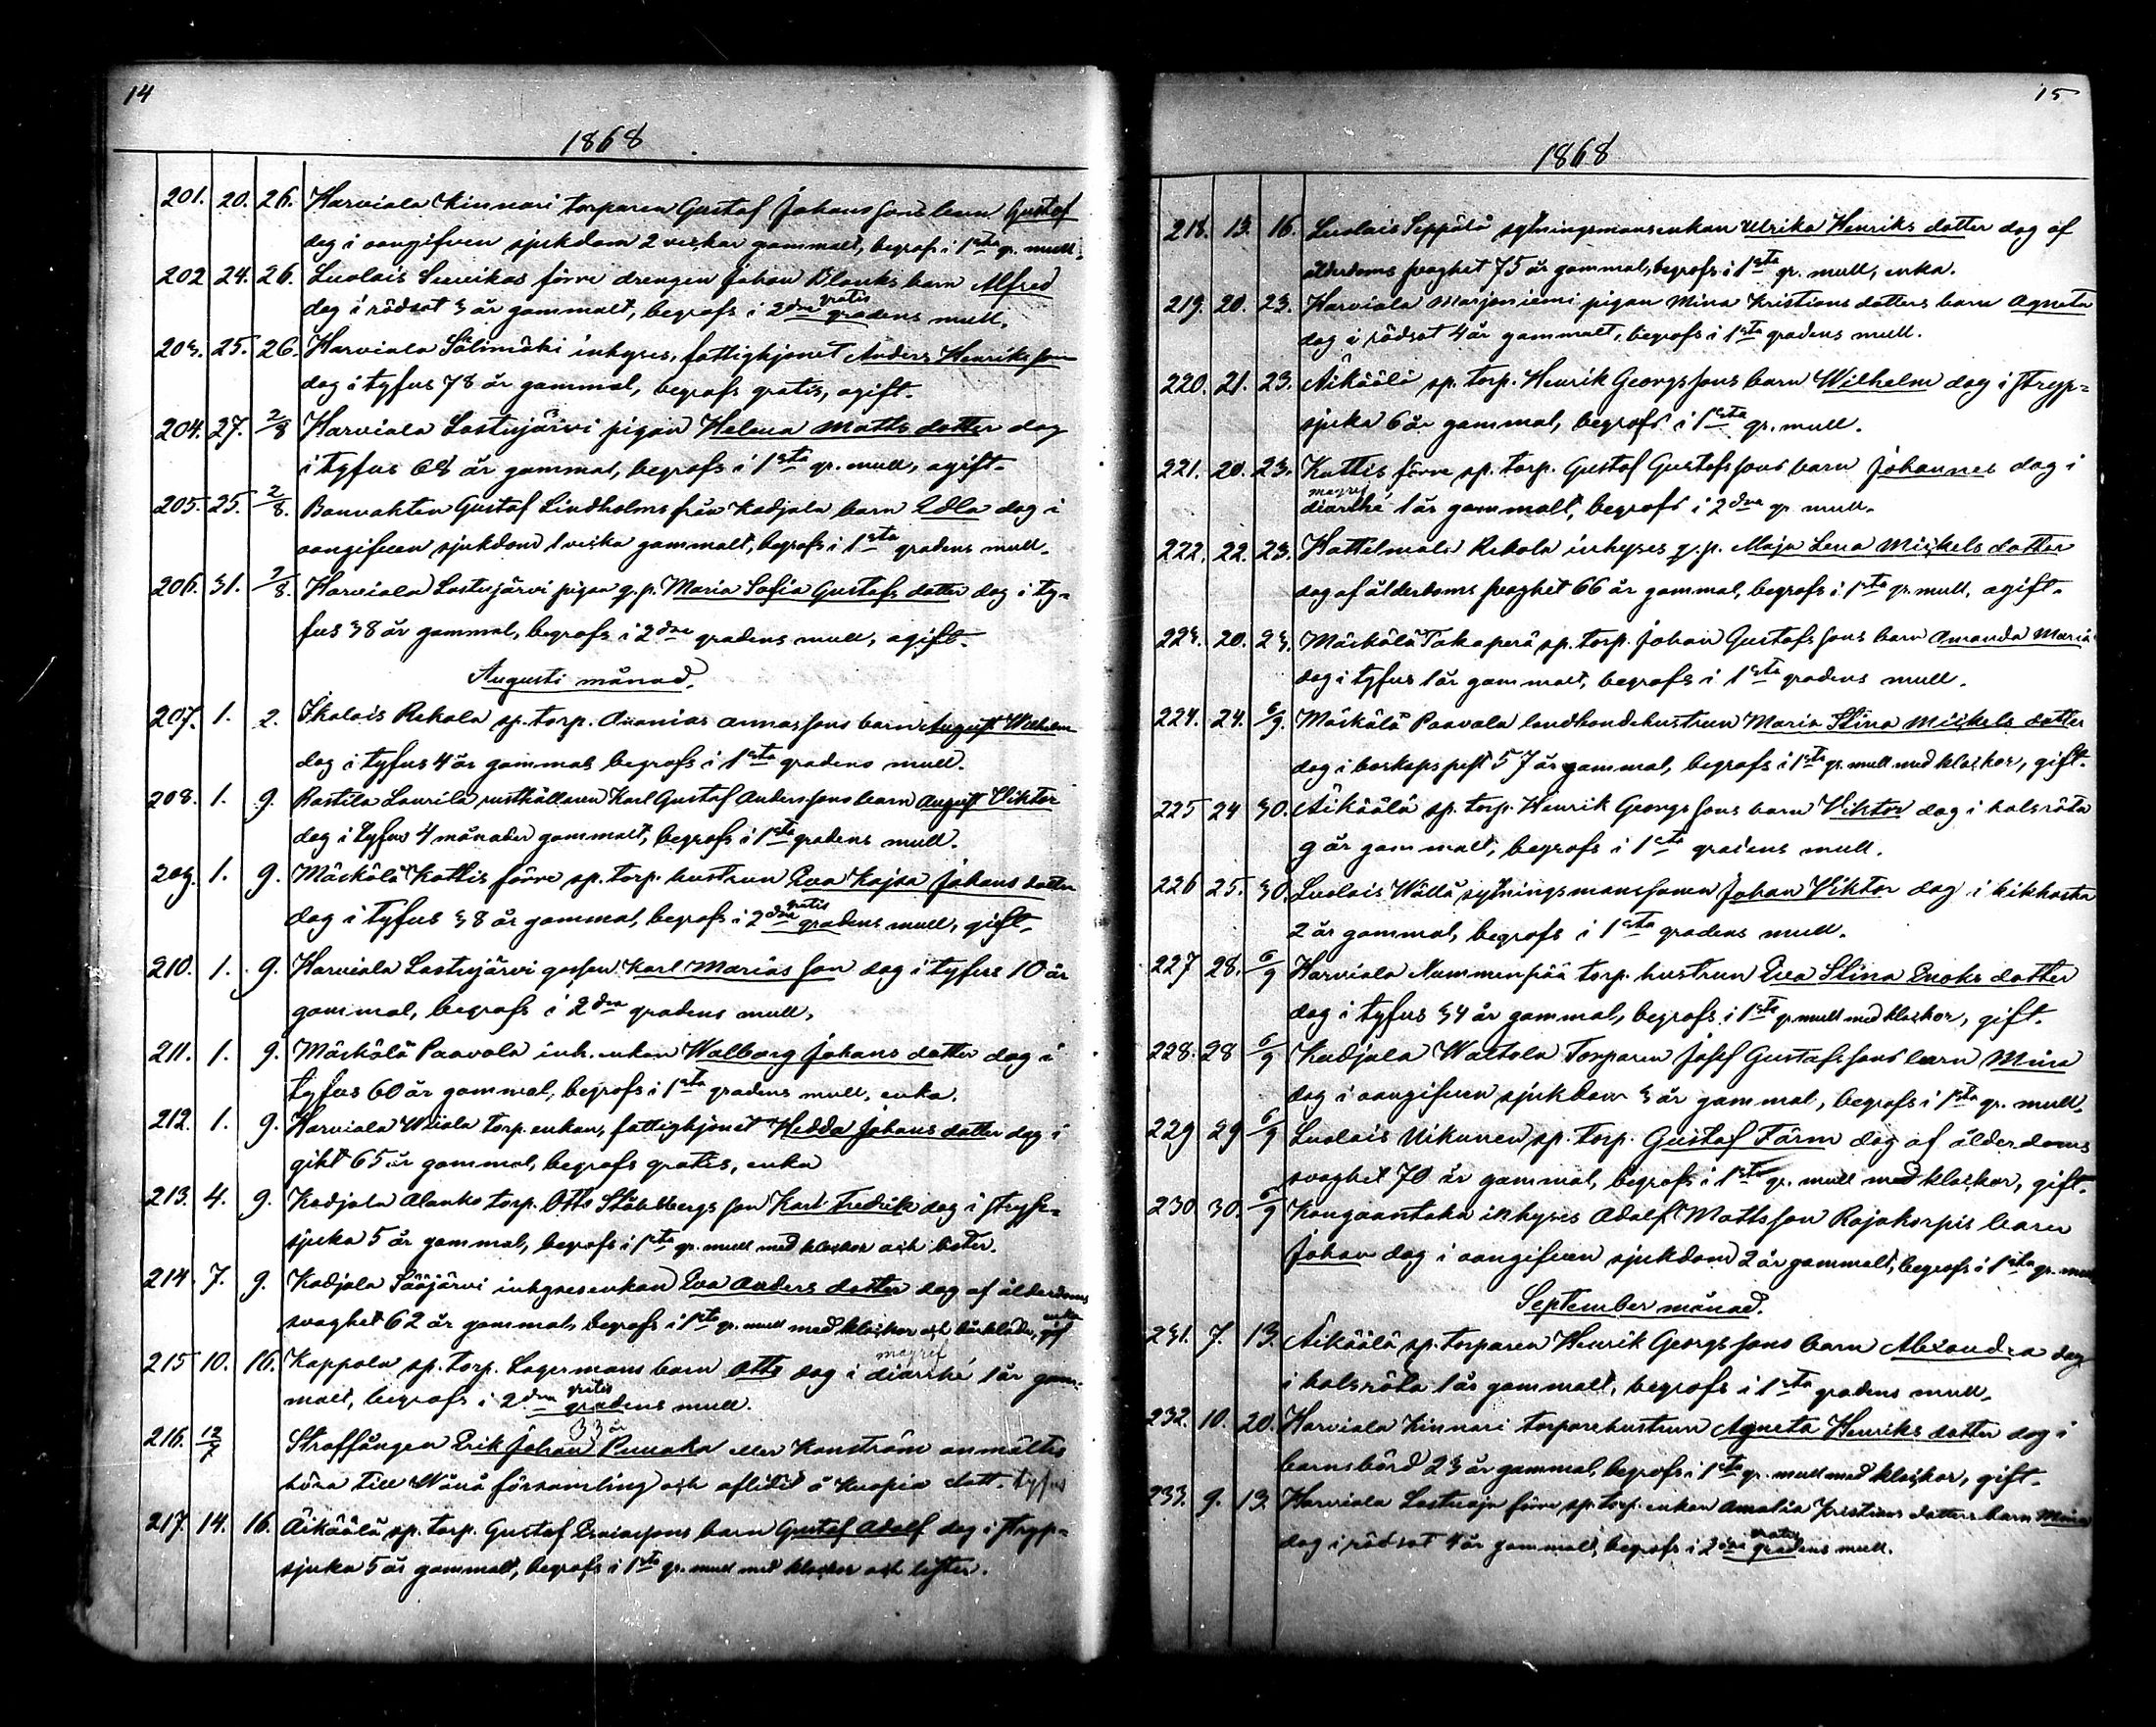 14
1868
201. 20. 26. Harviala Kinnari torparen Gustaf Johanssons barn Gustaf
dog i oangifven sjukdom 2 veckor gammalt, begrofs i 1sta gr. mull.
202 24. 26. Luolais förre drengen Johan Blanks barn Alfred
dog i rödsot 3 år gammalt, begrofs i 2dra gratis gradens mull.
203. 25. 26. Harviala Sälimäki inhyses, fattighjonet Anders Henriksson
dog i tyfus 78 år gammal, begrofs gratis, ogift.
204. 27. 2/8 Harviala Lastujärvi pigan Helena Matts dotter dog
i tyfus 63 år gammal, begrofs i 1sta gr. mull, ogift.
205. 25. 2/8. Banvakten Gustaf Lindholms från Kadjala barn Edla dog i
oangifven sjukdom 1 vecka gammalt, begrofs i 1sta gradens mull.
206. 31. 2/8. Harviala Lastujärvi pigan q.p. Maria Sofia Gustafs dotter dog i ty-
fus 38 år gammal, begrofs i 2dra gradens mull, ogift.
Augusti månad.
207. 1. 2. Ikalais Rekola sp. torp. Ananias Annassons barn August Wilhelm
dog i tyfus 4 år gammal begrofs i 1sta gradens mull.
208. 1. 9. Rastila Laurila rusthållaren Karl Gustaf Anderssons barn August Viktor
dog i tyfus 4 månader gammalt, begrofs i 1sta gradens mull.
209. 1. 9. Mäskälä Kattis förre sp. torp. hustrun Eva Kajsa Johans dotter
dog i tyfus 38 år gammal, begrofs i 2dra gratis gradens mull, gift.
210. 1. 9. Harviala Lastujärvi gossen Karl Mariasson dog i tyfus 10 år
gammal, begrofs i 2dra gradens mull.
211. 1. 9. Mäskälä Paavola inh. enkan Walborg Johans dotter dog i
tyfus 60 år gammal, begrofs i 1sta gradens mull, enka.
212. 1. 9. Harviala Wiiala torp. enkan, fattighjonet Hedda Johans dotter dog i
gikt 65 år gammal, begrofs gratis, enka
213. 4. 9. Kadjala Alanko torp. Otto Ståhlbergs son Karl Fredrik dog i stryp-
sjuka 5 år gammal, begrofs i 1sta gr. mull med klockor och lister.
214. 7. 9. Kadjala Sääjärvi inhysesenkan Eva Anders dotter dog af ålderdoms
svaghet 62 år gammal, begrofs i 1sta gr. mull med klockor och bårkläde, enka
215 10. 16. Kappola sp. torp. Lagermans barn Otto dog i diarrhé 1 år gam-
malt, begrofs i 2dra gratis gradens mull.
216. 12/7 Straffången Erik Johan Punaka eller Kanström 33 år anmältes
höra till Wånå församling och aflidit å Kuopio slott. tyfus
217. 14. 16. Äikäälä sp. torp. Gustaf Esaiassons barn Gustaf Adolf dog i stryp-
sjuka 5 år gammalt, begrofs i 1sta gr. mull med klockor och lister.
15
1868
218. 13. 16. Luolais Seppälä sytningsmansenkan Ulrika Henriks dotter dog af
ålderdoms svaghet 75 år gammal, begrofs i 1sta gr. mull, enka.
219. 20. 23. Harviala Marjoniemi pigan Mina Kristians dotters barn Agneta
dog i rödsot 4 år gammalt, begrofs i 1sta gradens mull.
220. 21. 23. Äikäälä sp. torp. Henrik Georgssons barn Wilhelm dog i stryp-
sjuka 6 år gammal, begrofs i 1sta gr. mull.
221. 20. 23. Kattis förre sp. torp. Gustaf Gustafssons barn Johannes dog i
diarrhé 1 år gammalt, begrofs i 2dra gr mull.
222. 22. 23. Hattelmala Rekola inhyses q.p. Maja Lena Mickels dotter
dog af ålderdoms svaghet 66 år gammal, begrofs i 1sta gr. mull, ogift.
223. 20. 23. Mäskälä Takaperä sp. torp. Johan Gustafssons barn Amanda Maria
dog i tyfus 1 år gammalt, begrofs i 1sta gradens mull.
224. 24. 6/9. Mäskälä Paavola landbondehustrun Maria Stina Mickels dotter
dog i boskapspest 57 år gammal, begrofs i 1sta gr. mull med klockor, gift.
225 24 30. Äikäälä sp. torp. Henrik Georgssons barn Viktor dog i halsröta
9 år gammalt, begrofs i 1sta gradens mull.
226 25. 30. Luolais Wällä sytningsmanssonen Johan Viktor dog i kikhosta
2 år gammal, begrofs i 1sta gradens mull.
227 28. 6/9 Harviala Nummenpää torp. hustrun Eva Stina Enoks dotter
dog i tyfus 34 år gammal, begrofs i 1sta gr mull med klockor, gift.
228. 28 6/9 Kadjala Wartola Torparen Josef Gustafssons barn Mina
dog i oangifven sjukdom 3 år gammal, begrofs i 1sta gr. mull.
229 29 6/9 Luolais Uikunen sp. torp. Gustaf Färm dog af ålderdoms
svaghet 70 år gammal, begrofs i 1sta gr. mull med klockor, gift.
230 30. 6/9 Kangaantaka inhyses Adolf Mattsson Rajakorpis barn
Johan dog i oangifven sjukdom 2 år gammalt, begrofs i 1sta gr. mull
September månad.
231. 7. 13. Äikäälä sp. torparen Henrik Georgssons barn Alexandra dog
i halsröta 1 år gammalt, begrofs i 1sta gradens mull.
232. 10. 20. Harviala Kinnari torparehustrun Agneta Henriks dotter dog i
barnsbörd 23 år gammal, begrofs i 1sta gr. mull med klockor, gift.
233. 9. 13. Harviala förre sp. torp. enkan Amalia Kristians dotters barn Mina
dog i rödsot 4 år gammalt, begrofs i 2dra gratis gradens mull.